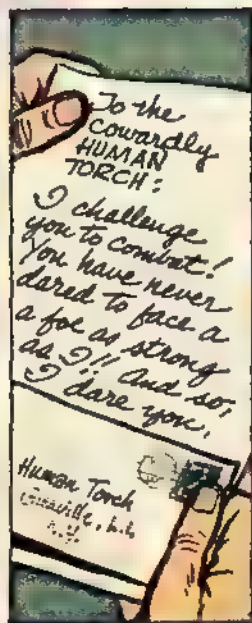 To the
Cowardly
HUMAN
TORCH:
I challenge
you to combat!
You have never
dared to face a
a foe as strong
as I!! And so,
I dare you,
Human Torch
L.I.